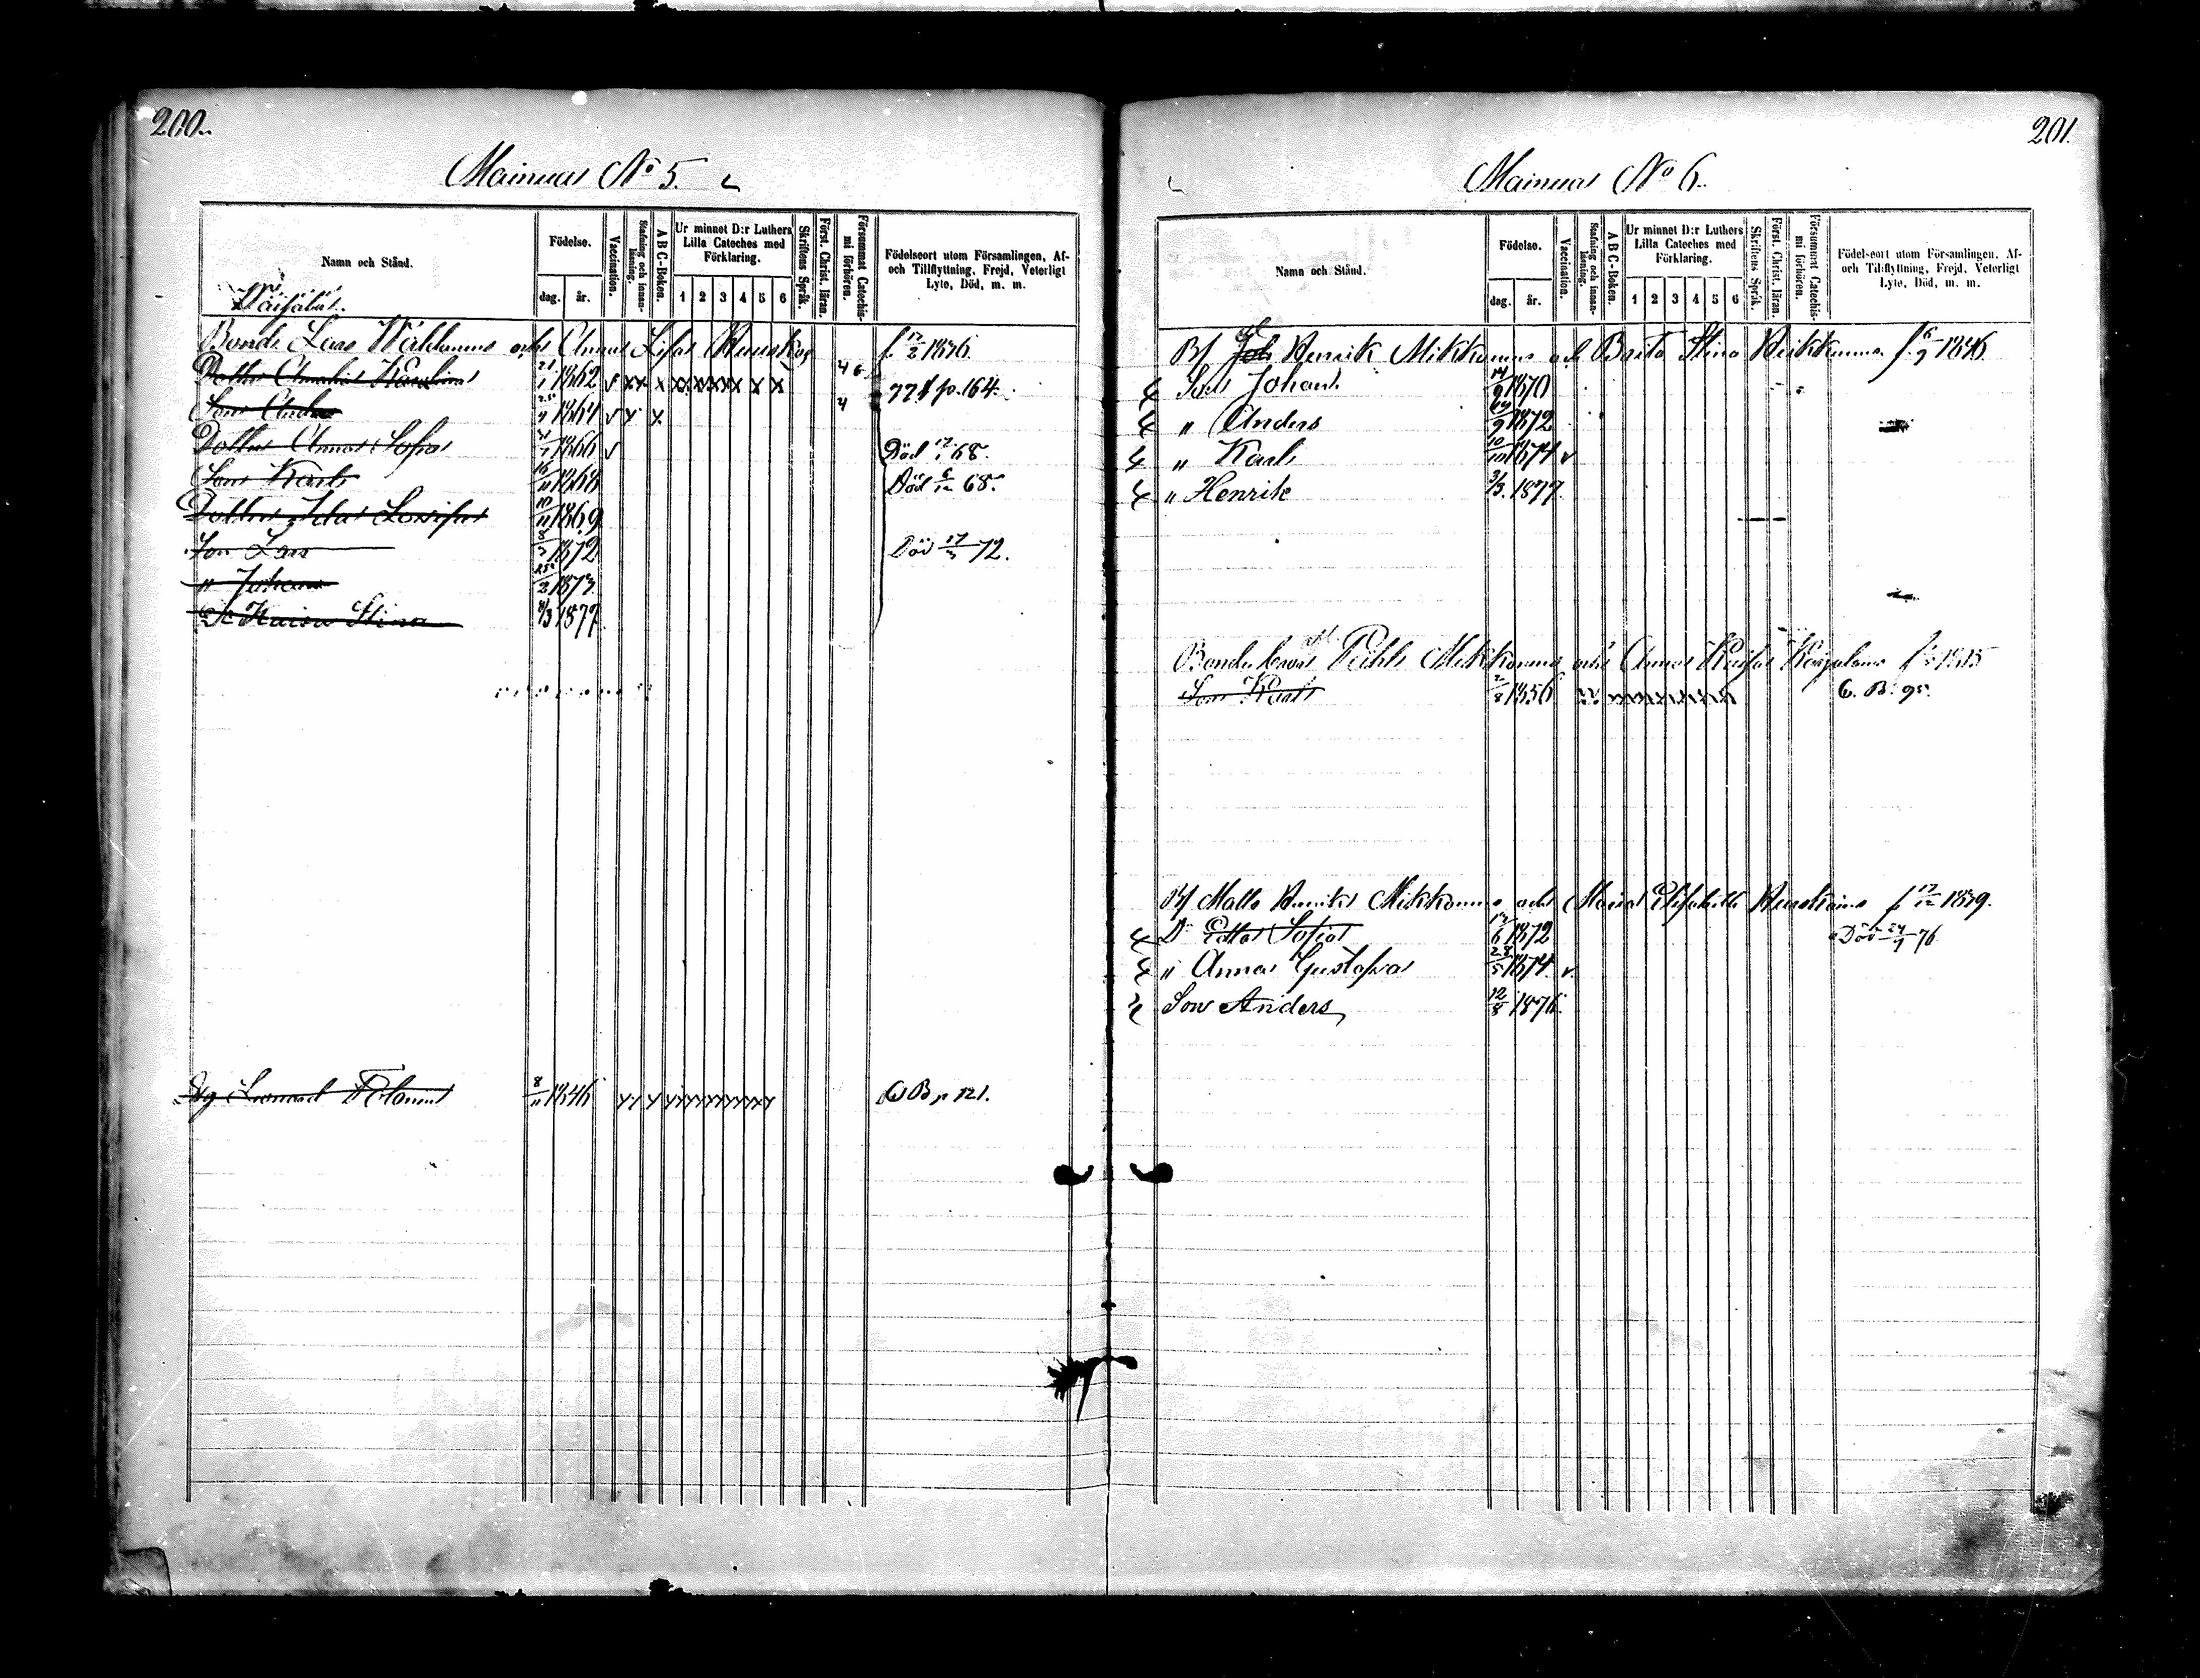 200.
Mainua No 5.
Namn och Stånd.
Födelse.
dag. år.
Vaccination.
Stafning och innanläsning.
A B C-Boken.
Ur minnet D:r Luthers Lilla Cateches med Förklaring.
1 2 3 4 5 6
Skriftens Språk.
Först. Christ. läran.
Försummat Catechismi förhören.
Födelseort utom Församlingen, Af- och Tillflyttning, Frejd, Veterligt Lyte, Död, m. m.
Väisälä.
Bonde Lars och Anna Lisa f. 12/2 1836.
Dotter Karolina 21/1 1862 v xx x xx x x x x x x 4 6 77 p. 164.
Son 1864 v x x 4
Dotter Anna Sofia 1866 v Död 68.
Son Karl 16/11 1868 Död 6/12 68.
Dotter Ida Lovisa 10/11 1869
Son Lars 8/3 1872 Död 17/3 72.
" Johan 25/2 1873.
Dr Kaisa Stina /3 1877
8/11 1846 B p 121.
201.
Mainua No 6.
Namn och Stånd.
Födelse.
dag. år.
Vaccination.
Stafning och innanläsning.
A B C-Boken.
Ur minnet D:r Luthers Lilla Cateches med Förklaring.
1 2 3 4 5 6
Skriftens Språk.
Först. Christ. läran.
Försummat Catechismi förhören.
Födelseort utom Församlingen, Af- och Tillflyttning, Frejd, Veterligt Lyte, Död, m. m.
Joh Henrik Mikkonen och Brita Stina Heikkinen f. 6/9 1846
Son Johan 14/9 1870
" Anders 9 1872
" Karl 10/10 1874 v
" Henrik 3/3. 1877.
Bonde Mikkonen och Anna Kaisa f. 1815
Son Karl 2/8 1856 C. B. 95.
Matts Henrik Mikkonen och Maria Elisabeth f. 17/12 1839.
Dr Edla Sofia 17/6 1872 Död 24/7 76
" Anna Gustafva 28/5 1874. v.
Son Anders 12/8 1876.